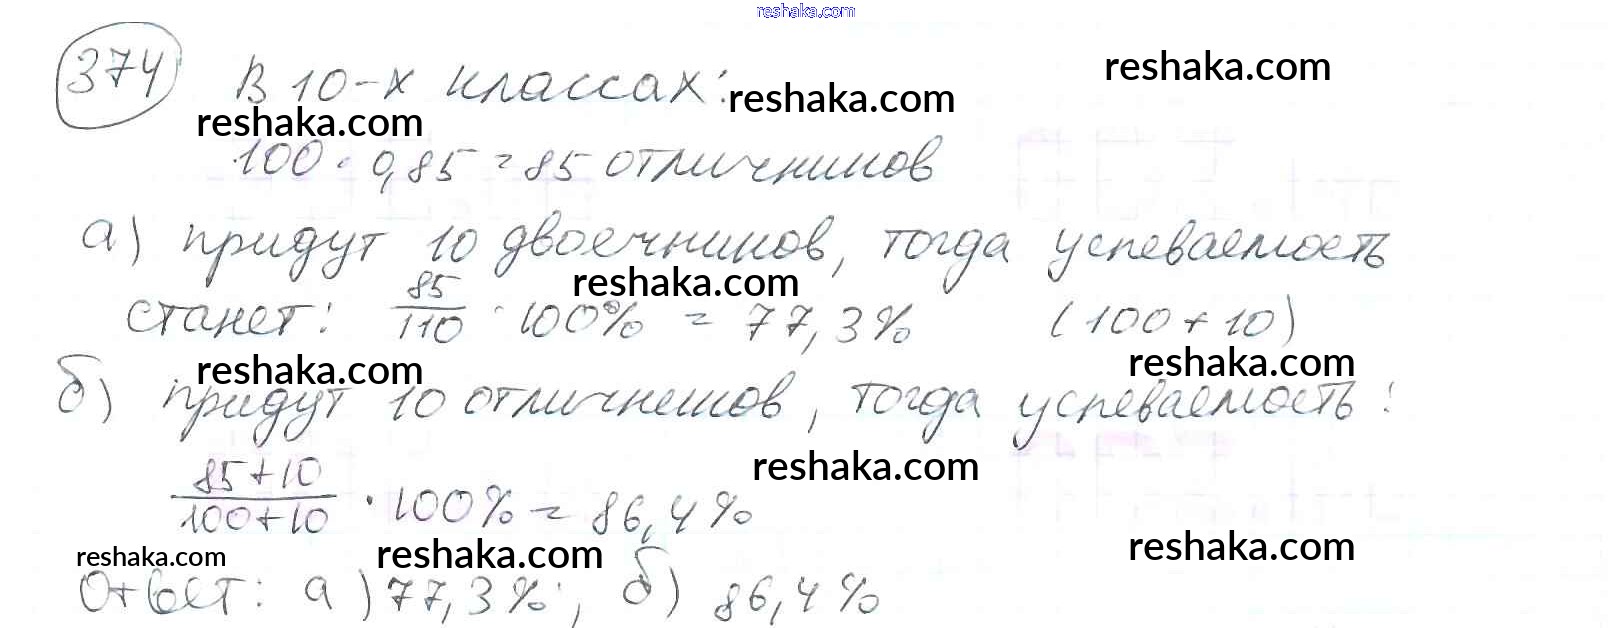 reshaka.com
374 В 10-х классах:
reshaka.com
reshaka.com
reshaka.com
100 · 0,85 = 85 отличников
а) придут 10 двоечников, тогда успеваемость
reshaka.com
станет: 85/110 · 100% = 77,3% (100+10)
reshaka.com
reshaka.com
б) придут 10 отличников, тогда успеваемость:
reshaka.com
85+10/100+10 · 100% = 86,4%
reshaka.com
reshaka.com
reshaka.com
Ответ: а) 77,3%; б) 86,4%